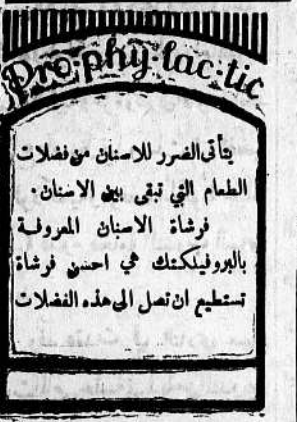 Pro·phy·lac·tic
يتأتى الضرر للاسنان من فضلات
الطعام التي تبقى بين الاسنان ·
فرشاة الاسنان المعروفة
بالبروفيلكتك هي احسن فرشاة
تستطيع ان تصل الى هذه الفضلات